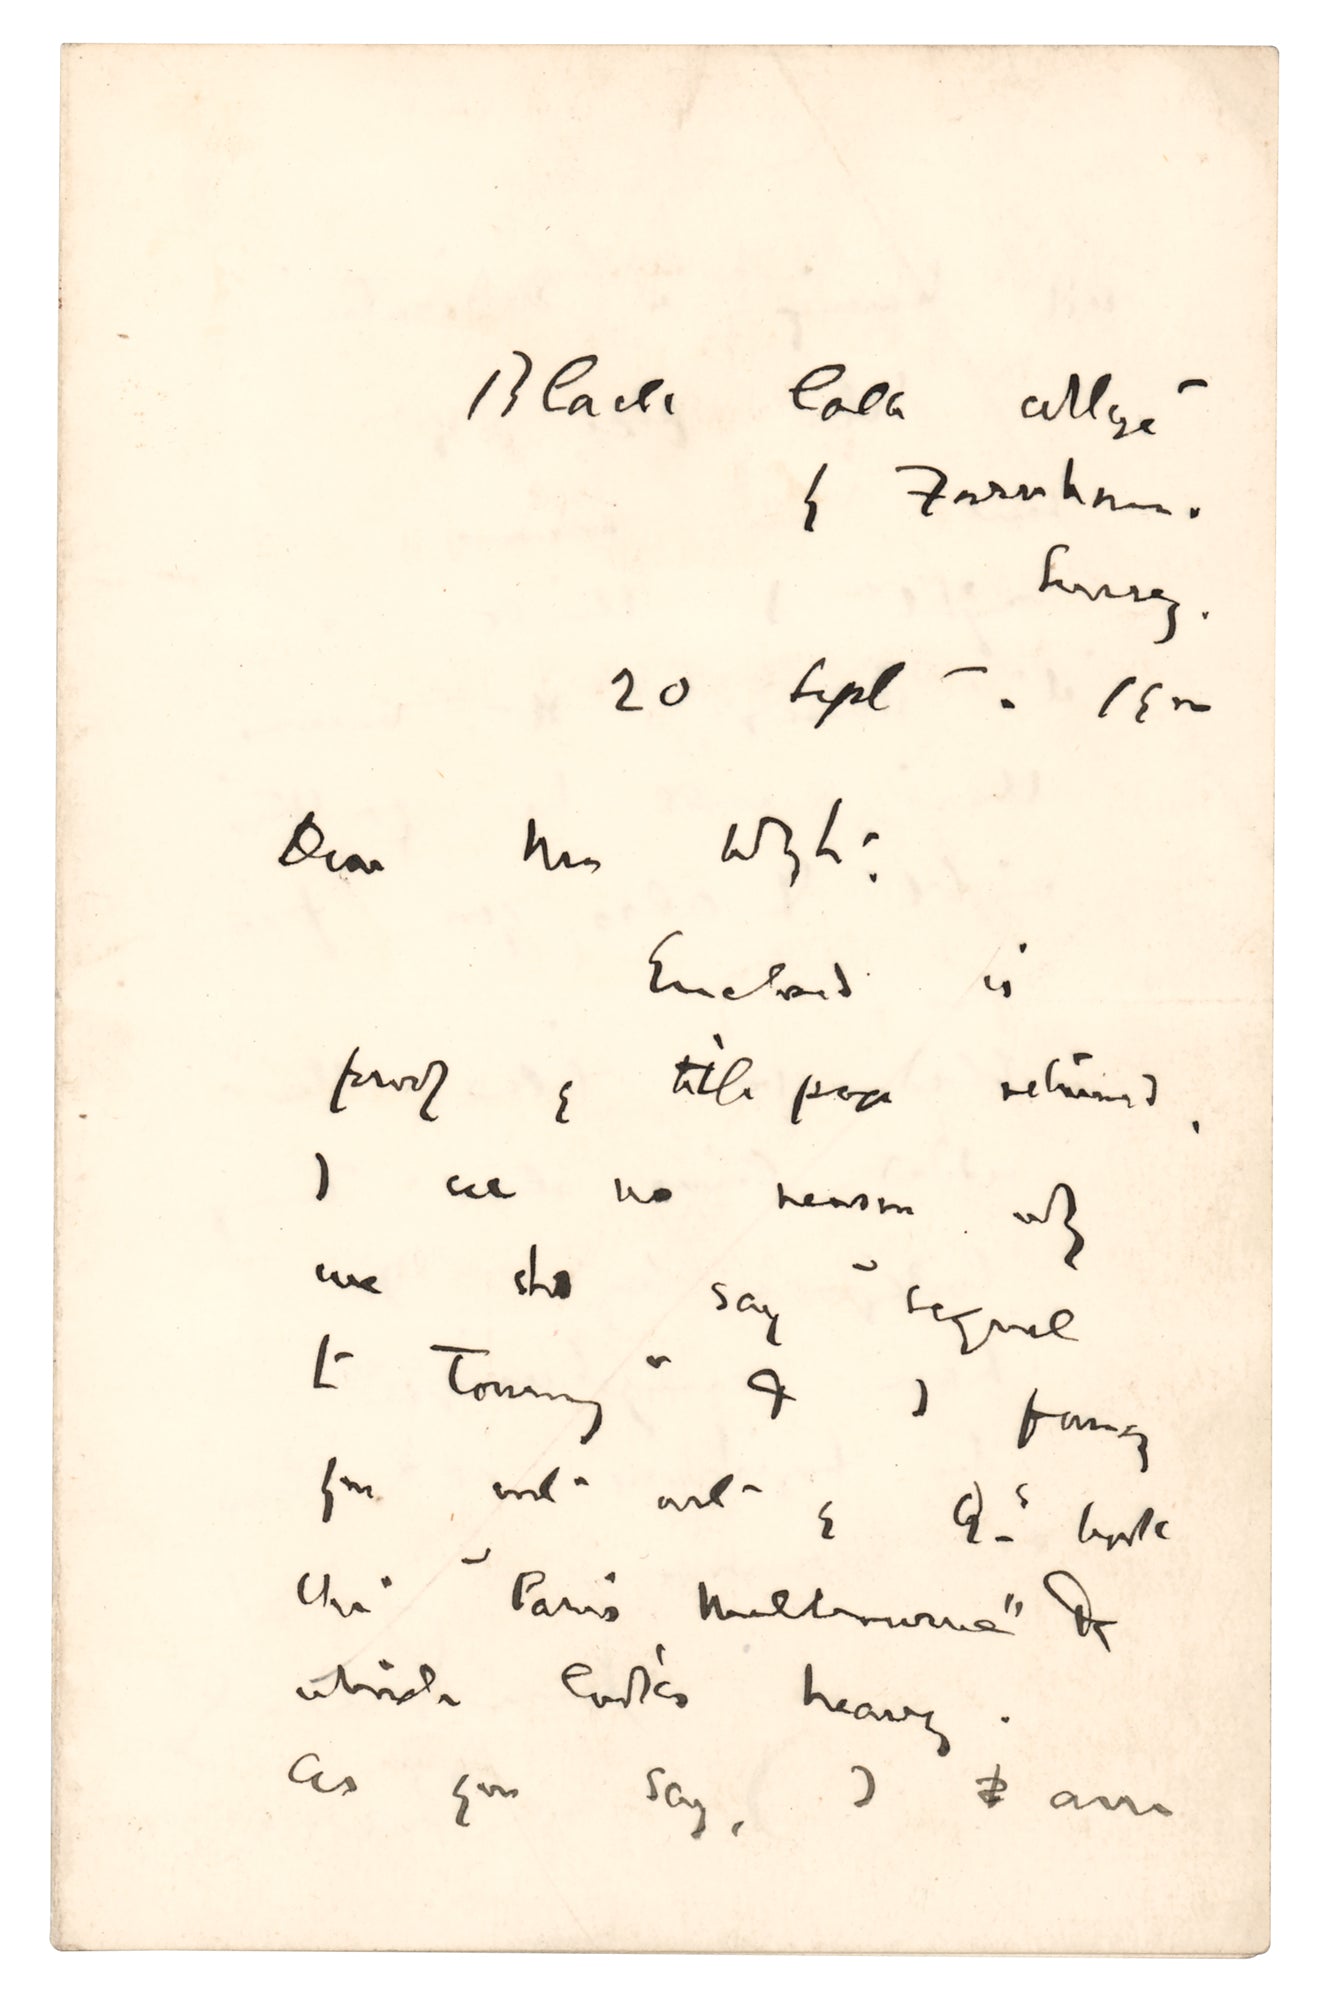 Black Lake Cottage
of Farnham.
Surrey.
20 Sept. 1900
Dear Mr Whyte.
Enclosed is
proof of title page returned.
I see no reason why
we shd say "sequel
to Tommy" & I fancy
you out of Q's book
the "Paris Melbourne" &c
which looks heavy.
As you say, I am